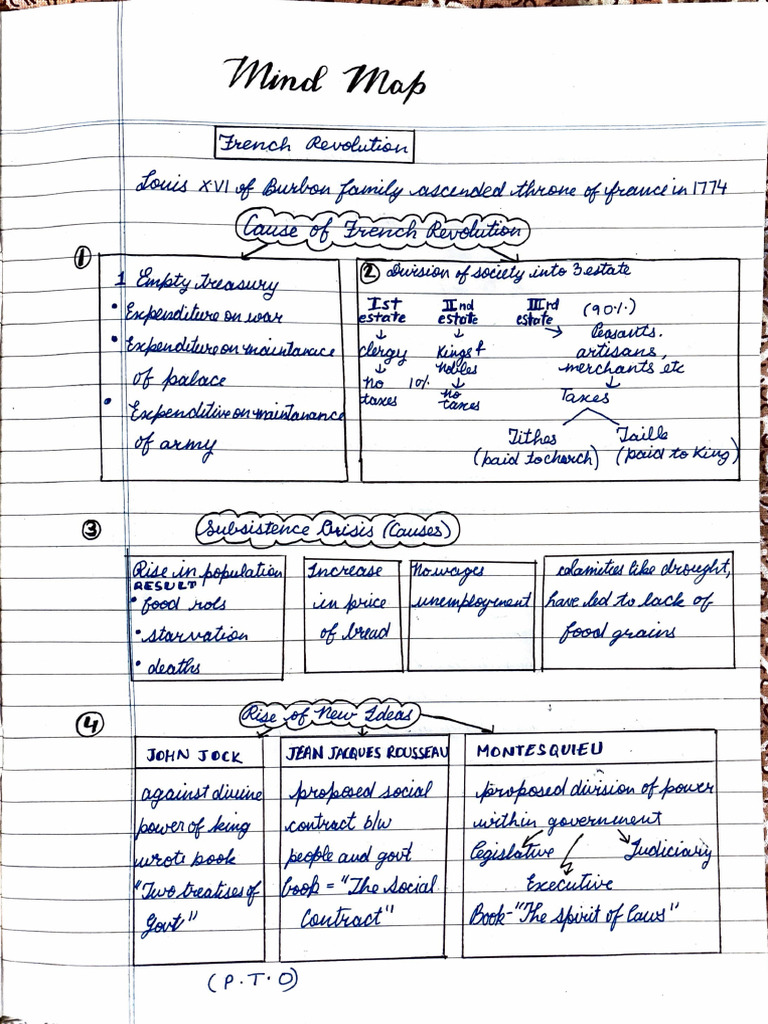 Mind Map
French Revolution
Louis XVI of Burbon family ascended throne of france in 1774
Cause of French Revolution
①
1 Empty treasury
• Expenditure on war
• Expenditure on maintanance
of palace
• Expenditive on maintanance
of army
② Division of society into 3 estate
Ist estate
↓
clergy
↓
no taxes
10%
IInd estate
↓
Kings & Nobles
↓
no taxes
IIIrd estate (90%)
→ Peasants,
artisans,
merchants etc
↓
Taxes
Tithes
(paid to church)
Taille
(paid to King)
③ Subsistence Crisis (Causes)
Rise in population
RESULT
• food rols
• starvation
• deaths
Increase
in price
of bread
No wages
unemployment
calamities like drought,
have led to lack of
food grains
④ Rise of New Ideas
JOHN JOCK
against divine
power of king
wrote book
"Two treatises of
Govt"
JEAN JACQUES ROUSSEAU
proposed social
contract b/w
people and govt
book = "The Social
Contract"
MONTESQUIEU
proposed division of power
within government
Legislative
Judiciary
Executive
Book-"The spirit of laws"
(P.T.O)